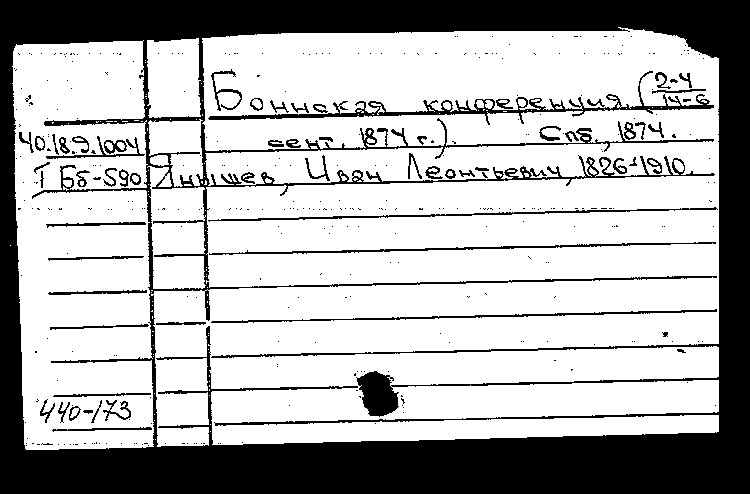 Боннская конференция (2-4/14-6
40.18.9.1004 сент. 1874 г.). Спб., 1874.
I Бб-590 Янышев, Иван Леонтьевич, 1826-1910.
440-173